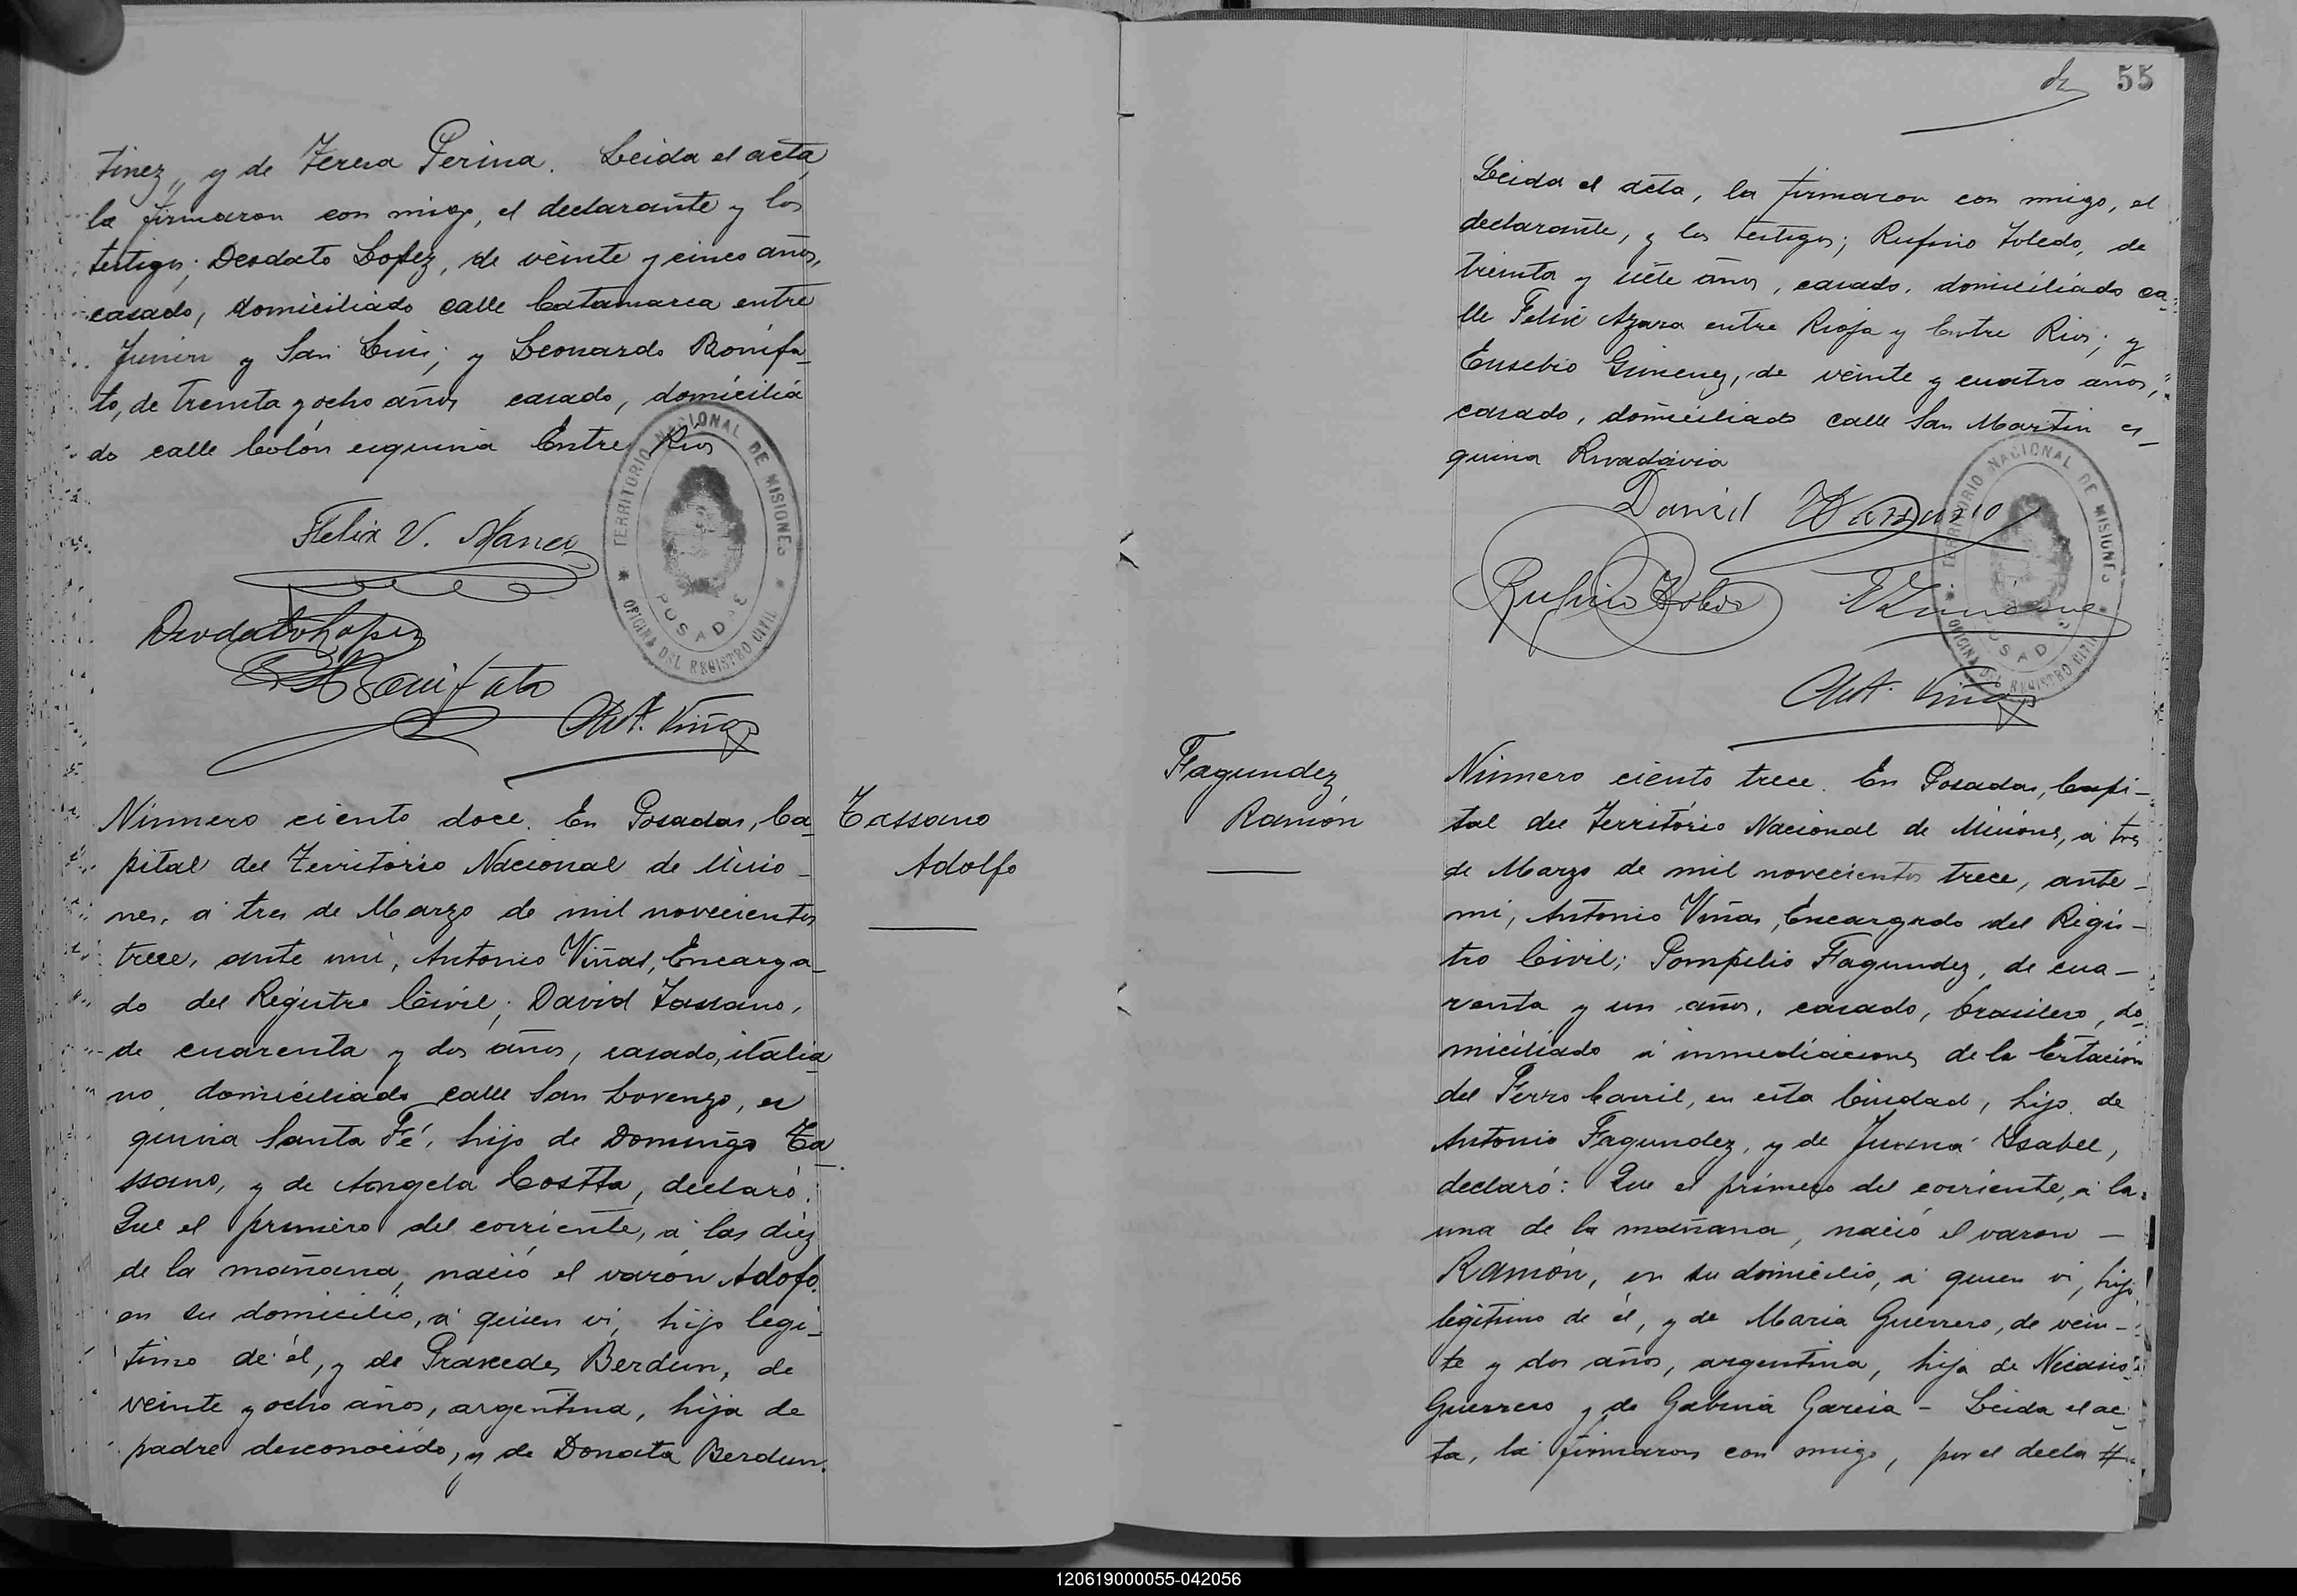 tinez,, y de Teresa Perina. Leida el acta
la firmaron con migo, el declarante y los
testigos; Deodato Lopez, de veinte y cinco años,
casado, domiciliado calle Catamarca entre
Junin y San Luis; y Leonardo Bonifa-
to, de treinta y ocho años casado, domicilia
do calle Colón esquina Entre Rios
TERRITORIO NACIONAL DE MISIONES
POSADAS
OFICINA DEL REGISTRO CIVIL
Felix V.
Deodato Lopez
Bonifato
Ant. Viñas
Número ciento doce. En Posadas, Ca-
pital del Territorio Nacional de Misio-
nes, á tres de Marzo de mil novecientos
trece, ante mi, Antonio Viñas, Encarga-
do del Registro Civil; David Tassano,
de cuarenta y dos años, casado, italia-
no, domiciliado calle San Lorenzo, es
quina Santa Fé, hijo de Domingo Ta-
ssano, y de Angela Costta, declaró:
Que el primero del corriente, á las diez
de la mañana, nació el varón Adofo.
en su domicilio, á quien vi, hijo legi-
timo de él, y de Praxedes Berdun, de
veinte y ocho años, argentina, hija de
padre desconocido, y de Donata Berdun.
Tassano
Adolfo
55
Leida el acta, la firmaron con migo, el
declarante, y los testigos; Rufino Toledo, de
treinta y siete años, casado, domiciliado ca-
lle Felix Azara entre Rioja y Entre Rios; y
Eusebio Gimenez, de veinte y cuatro años,
casado, domiciliado calle San Martin es-
quina Rivadavia
TERRITORIO NACIONAL DE MISIONES
POSADAS
OFICINA DEL REGISTRO CIVIL
David Tassano
Rufino Toledo
E Gimenez
Ant. Viñas
Fagundez
Ramón
Número ciento trece. En Posadas, Capi-
tal del Territorio Nacional de Misiones, á tres
de Marzo de mil novecientos trece, ante-
mi, Antonio Viñas, Encargado del Regis-
tro Civil; Pompilio Fagundez, de cua-
renta y un años, casado, brasilero, do-
miciliado á inmediaciones de la Estación
del Ferro Carril, en esta Ciudad, hijo de
Antonio Fagundez, y de Juana Ysabel,
declaró: Que el primero del corriente, á la
una de la mañana, nació el varon -
Ramón, en su domicilio, á quien vi, hijo
legitimo de él, y de Maria Guerrero, de vein-
te y dos años, argentina, hija de Nicasio
Guerrero y de Gabina Garcia - Leida el ac-
ta, la firmaron con migo, por el decla #
120619000055-042056